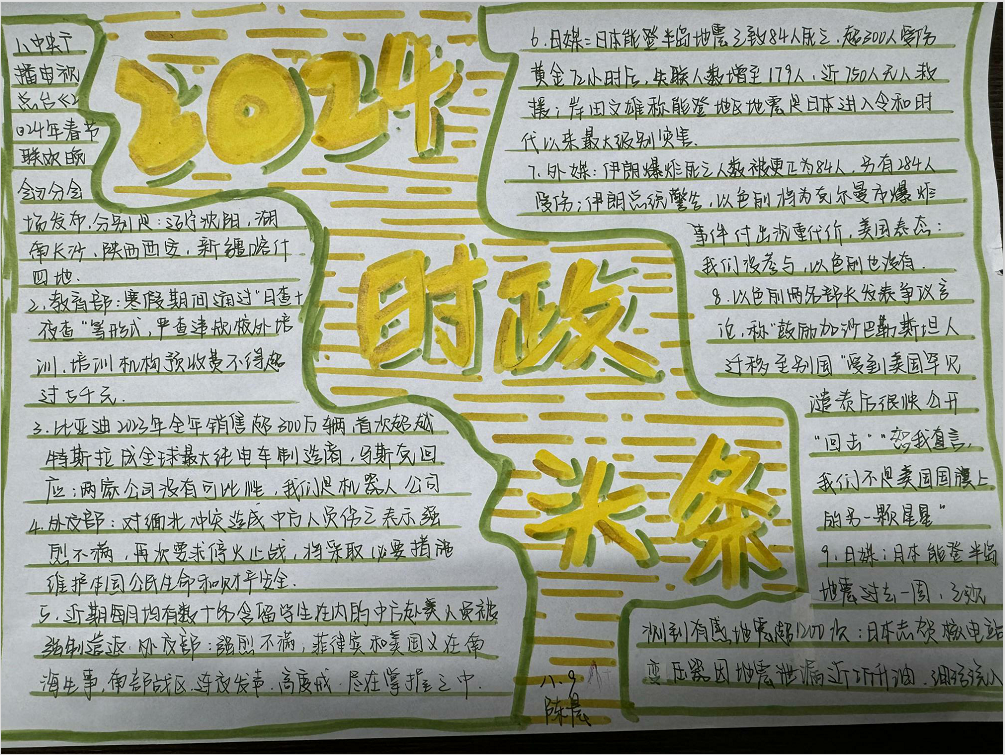 2024
时政
头条
1、中央广
播电视
总台《2
024年春节
联欢晚
会》分会
场发布,分别是:辽宁沈阳,湖
南长沙,陕西西安,新疆喀什
四地.
2、教育部:寒假期间通过“日查+
夜查”等形式,严查违规校外培
训,培训机构预收费不得超
过5千元.
3、比亚迪2023年全年销售超300万辆,首次超越
特斯拉成全球最大纯电车制造商,马斯克回
应:两家公司没有可比性,我们是机器人公司
4、外交部:对缅北冲突造成中方人员伤亡表示强
烈不满,再次要求停火止战,将采取必要措施
维护中国公民生命和财产安全.
5、近期每月均有数十名含留学生在内的中方赴美人员被
强制遣返,外交部:强烈不满,菲律宾和美国又在南
海生事,南部战区连夜发声,高度戒 尽在掌握之中.
6、日媒:日本能登半岛地震已致84人死亡,超300人受伤
黄金72小时后,失联人数增至179人,近750人无人救
援;岸田文雄称能登地区地震是日本进入令和时
代以来最大级别灾害.
7、外媒:伊朗爆炸死亡人数被更正为84人,另有284人
受伤;伊朗总统警告,以色列将为克尔曼市爆炸
事件付出沉重代价,美国表态:
我们没参与,以色列也没有.
8、以色列两名部长发表争议言
论,称“鼓励加沙巴勒斯坦人
迁移至别国”受到美国罕见
谴责后很快公开
“回击”“恕我直言,
我们不是美国国旗上
的另一颗星星”
9、日媒:日本能登半岛
地震过去一周,已观
测到有感地震超1200次:日本志贺核电站
变压器因地震泄漏近2万升油,油污流入
八.9
陈晨